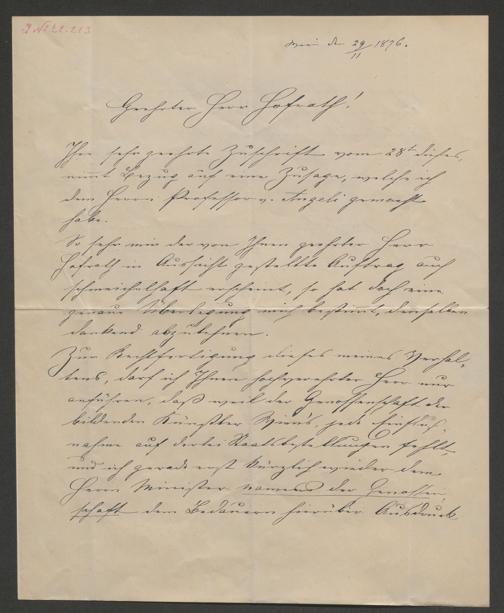 Wien den 29/11 1876.
Geehrter Herr Hofrath!
Ihre sehr geehrte Zuschrift vom 28t dieses,
nimmt Bezug auf eine Zusage, welche ich
dem Herrn Professor v. Angeli gemacht
habe.
So sehr mir der von Ihnen geehrter Herr
Hofrath in Aussicht gestellte Auftrag auch
schmeichelhaft erscheint, so hat doch eine
genaue Überlegung mich bestimmt, denselben
dankend abzulehnen.
Zur Rechtfertigung dieses meines Verhal-
tens, darf ich Ihnen hochverehrter Herr nur
anführen, daß weil der Genossenschaft der
bildenden Künstler Wiens, jede Einfluß-
nahme auf derlei Staatsbestellungen fehlt
und ich gerade erst kürzlich wieder dem
Herrn Minister namens der Genossen-
schaft dem Bedauern hierüber Ausdruck